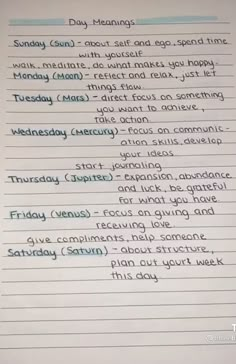 Day Meanings
Sunday (Sun) - about self and ego, spend time
with yourself
walk, meditate, do what makes you happy.
Monday (Moon) - reflect and relax, just let
things flow
Tuesday (Mars) - direct focus on something
you want to achieve,
take action
Wednesday (Mercury) - Focus on communic-
ation skills, develop
your ideas
start journaling
Thursday (Jupiter) - expansion, abundance
and luck, be grateful
for what you have
Friday (Venus) - Focus on giving and
receiving love
give compliments, help someone
Saturday (Saturn) - about structure,
plan out your week
this day